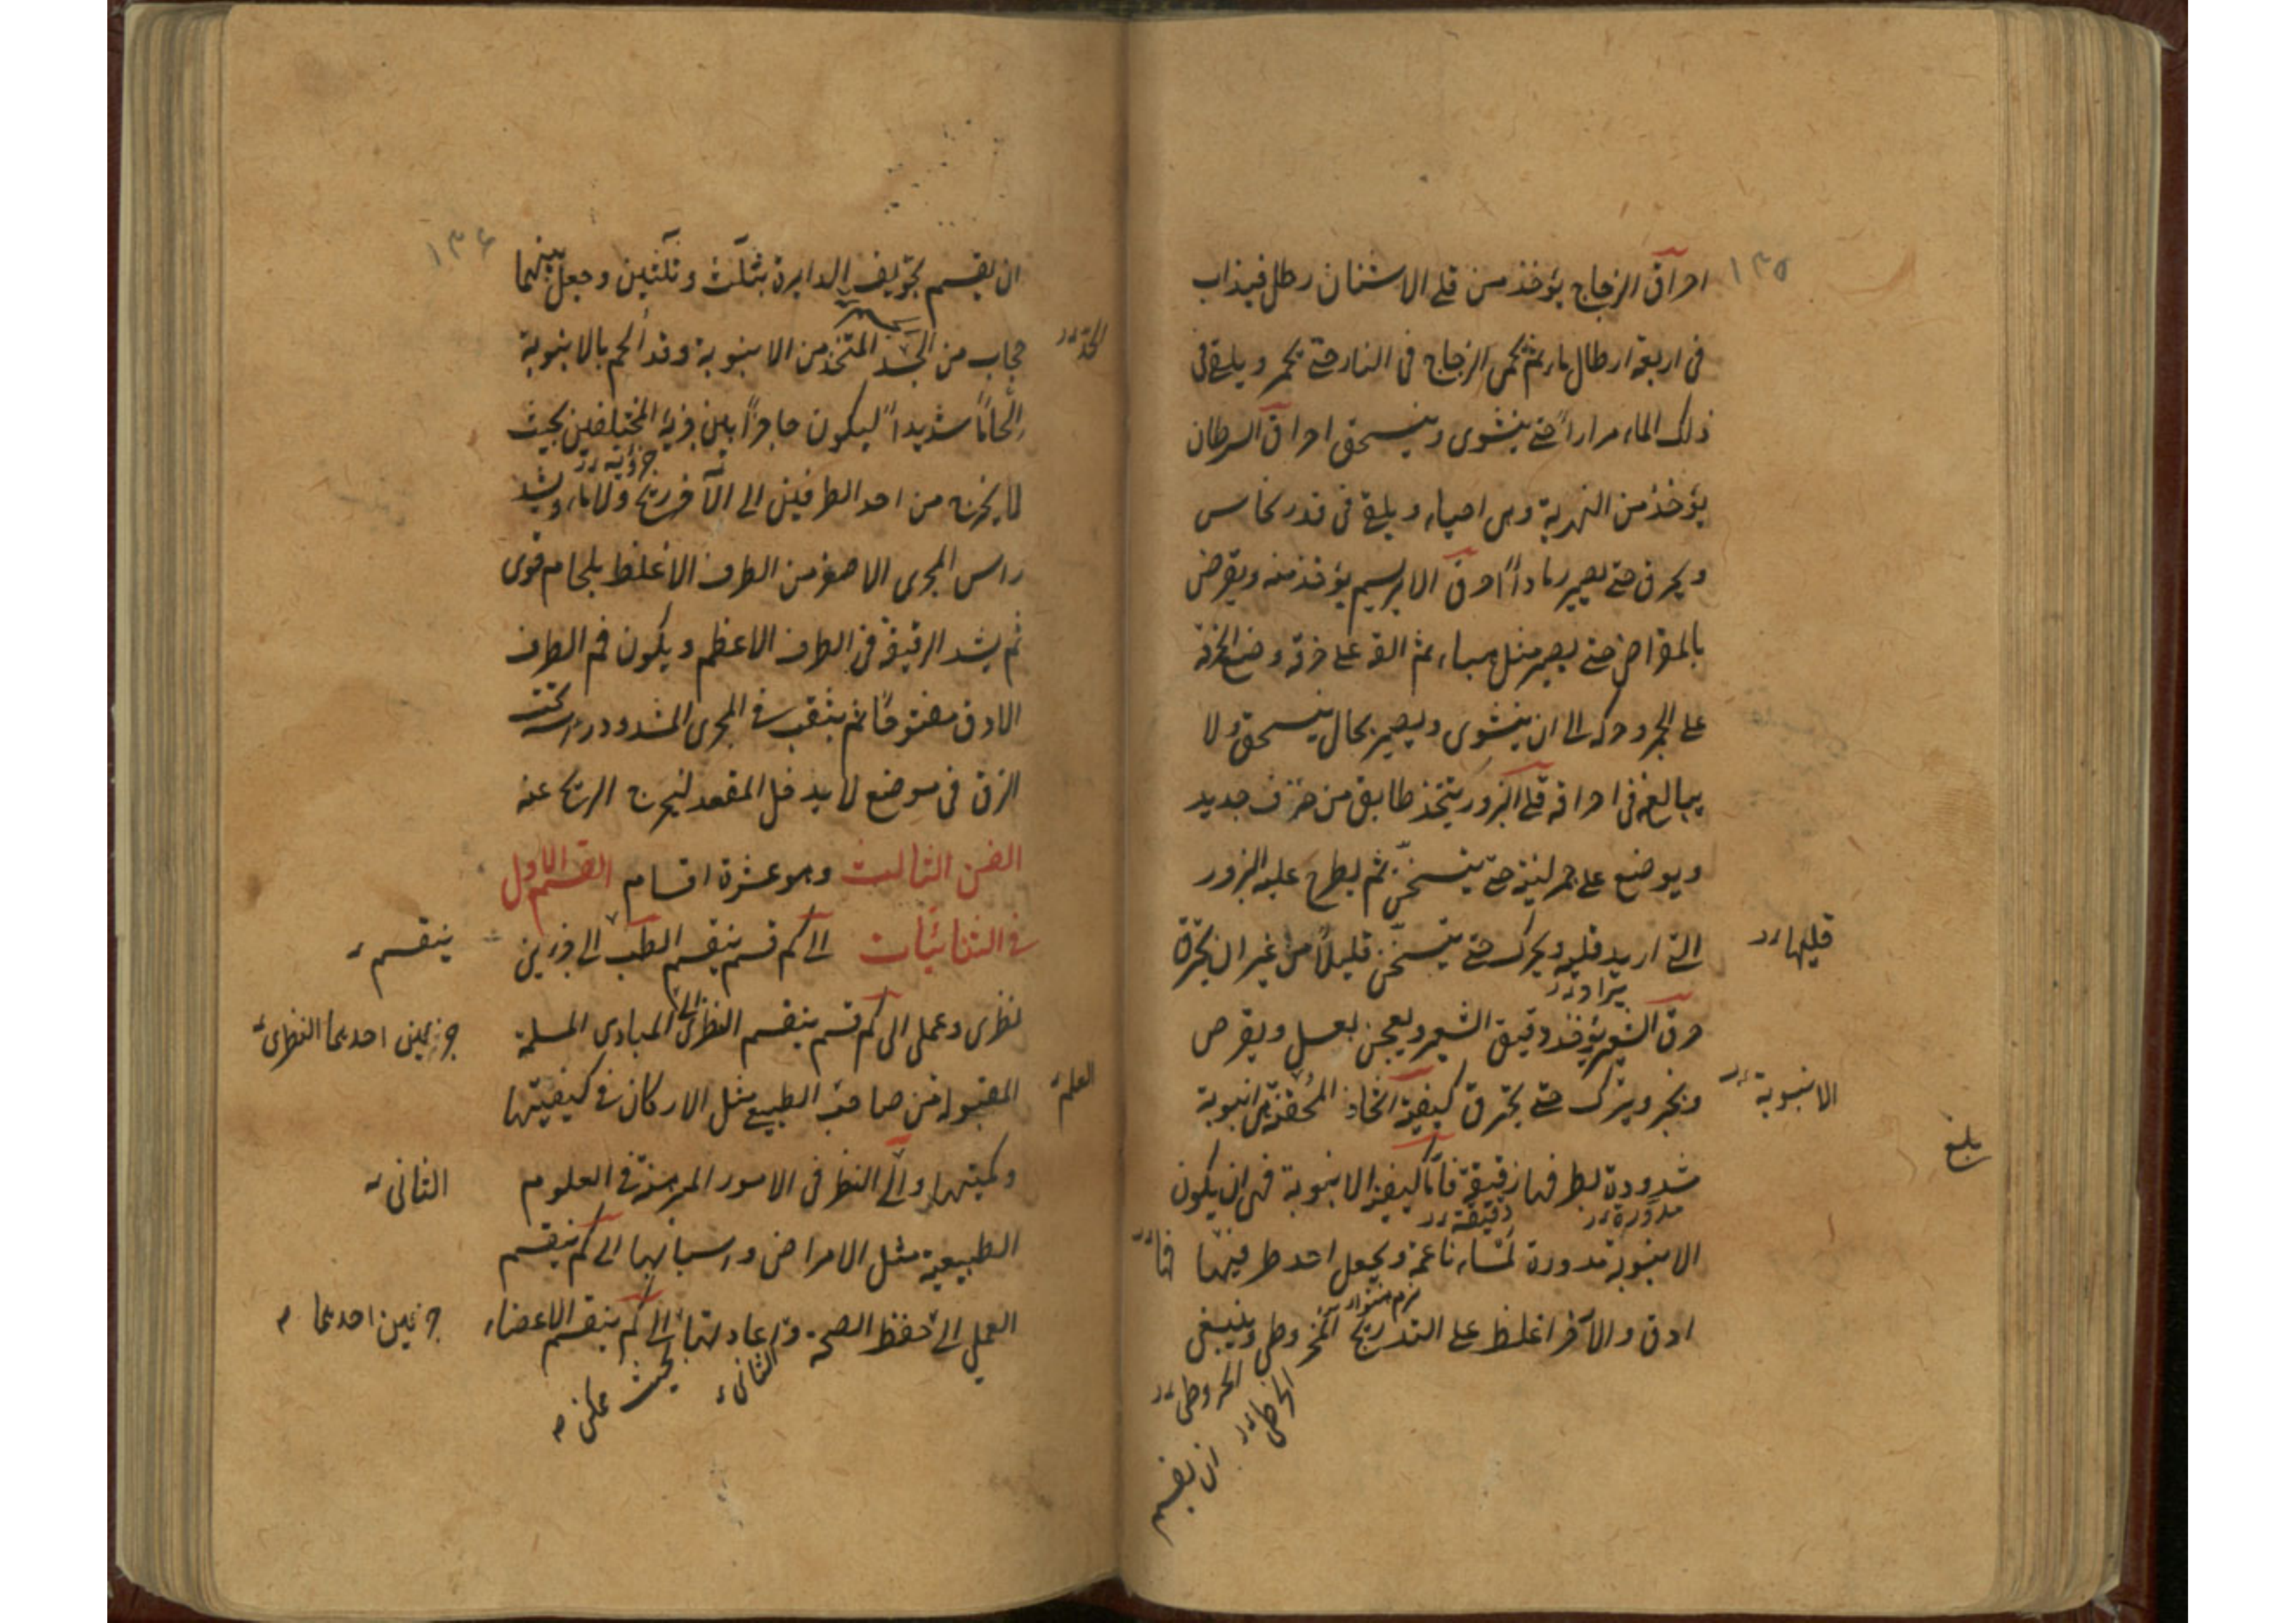 ١٣٥
احراق الزجاج يؤخذ من قلي الاشنان رطل فيذاب
في اربعة ارطال ماء ثم يحمى الزجاج في النار حتى يحمر ويلقى في
ذلك الماء مراراً حتى ينشوى وينسحق احراق السرطان
يؤخذ من النهرية وهي احياء ويلقى في قدر نحاس
ويحرق حتى يصير رماداً احرق الابريسم يؤخذ منه ويقرض
بالمقراض حتى يصير مثل هباء ثم القه على خرقة وضع الخرقة
على الجمر وحركه الى ان ينشوى ويصير بحال ينسحق ولا
يبالغ في احراقه قلي البزور يتخذ طابق من خزف جديد
ويوضع على جمر لينة حتى يتسخن ثم يطرح عليه البزور
التي اريد قليه ويحرك حتى يتسخن قليلاً من غير ان يحترق
قليها
حرق الشعير يؤخذ دقيق الشعير ويعجن بعسل ويقرص
ويخبز ويترك حتى يحترق كيفية اتخاذ المحقنة هي انبوبة
الانبوبة
مشدودة بطرفها زقيقة فاما كيفية الانبوبة فهي ان يكون
بلغ
مدورة دقيقة
الانبوبة مدورة لمساء ناعمة ويجعل احد طرفيها
ادق والآخر اغلظ على التدريج المخروطي وينبغي
المخروطي
ان يقسم
١٣٦
ان يقسم تجويف الدايرة بثلث وثلثين وجعل بينهما
حجاب من الجسد المتخذ من الانبوبة وقد ألحم بالانبوبة
إلحاماً شديداً ليكون حاجزاً بين جزئه المختلفين بحيث
لا يخرج من احد الطرفين الى الآخر ريح ولا ماء ويشد
راس المجرى الاصغر من الطرف الاغلظ بلحام قوى
ثم يشد الزقيقة في الطرف الاعظم ويكون فم الطرف
الادق مفتوحاً ثم يثقب في المجرى المشدود راسه تحت
الزق في موضع لا يدخل المقعد ليخرج الريح عنه
الفن الثالث وهو عشرة اقسام القسم الاول
في الثنائيات الى كم قسم ينقسم الطب الى جزءين
ينقسم
نظرى وعملى الى كم قسم ينقسم النظرى الى المبادى المسلمة
جزئين احديهما النظرى
المقبولة من صاحب الطبيعي مثل الاركان في كيفيتها
العلم
وكميتها والى النظر في الامور المبرهنة في العلوم
الثانى
الطبيعية مثل الامراض واسبابها الى كم ينقسم
العملى الى حفظ الصحة واعادتها الى كم ينقسم الاعضاء
جزئين احديهما
الثانى